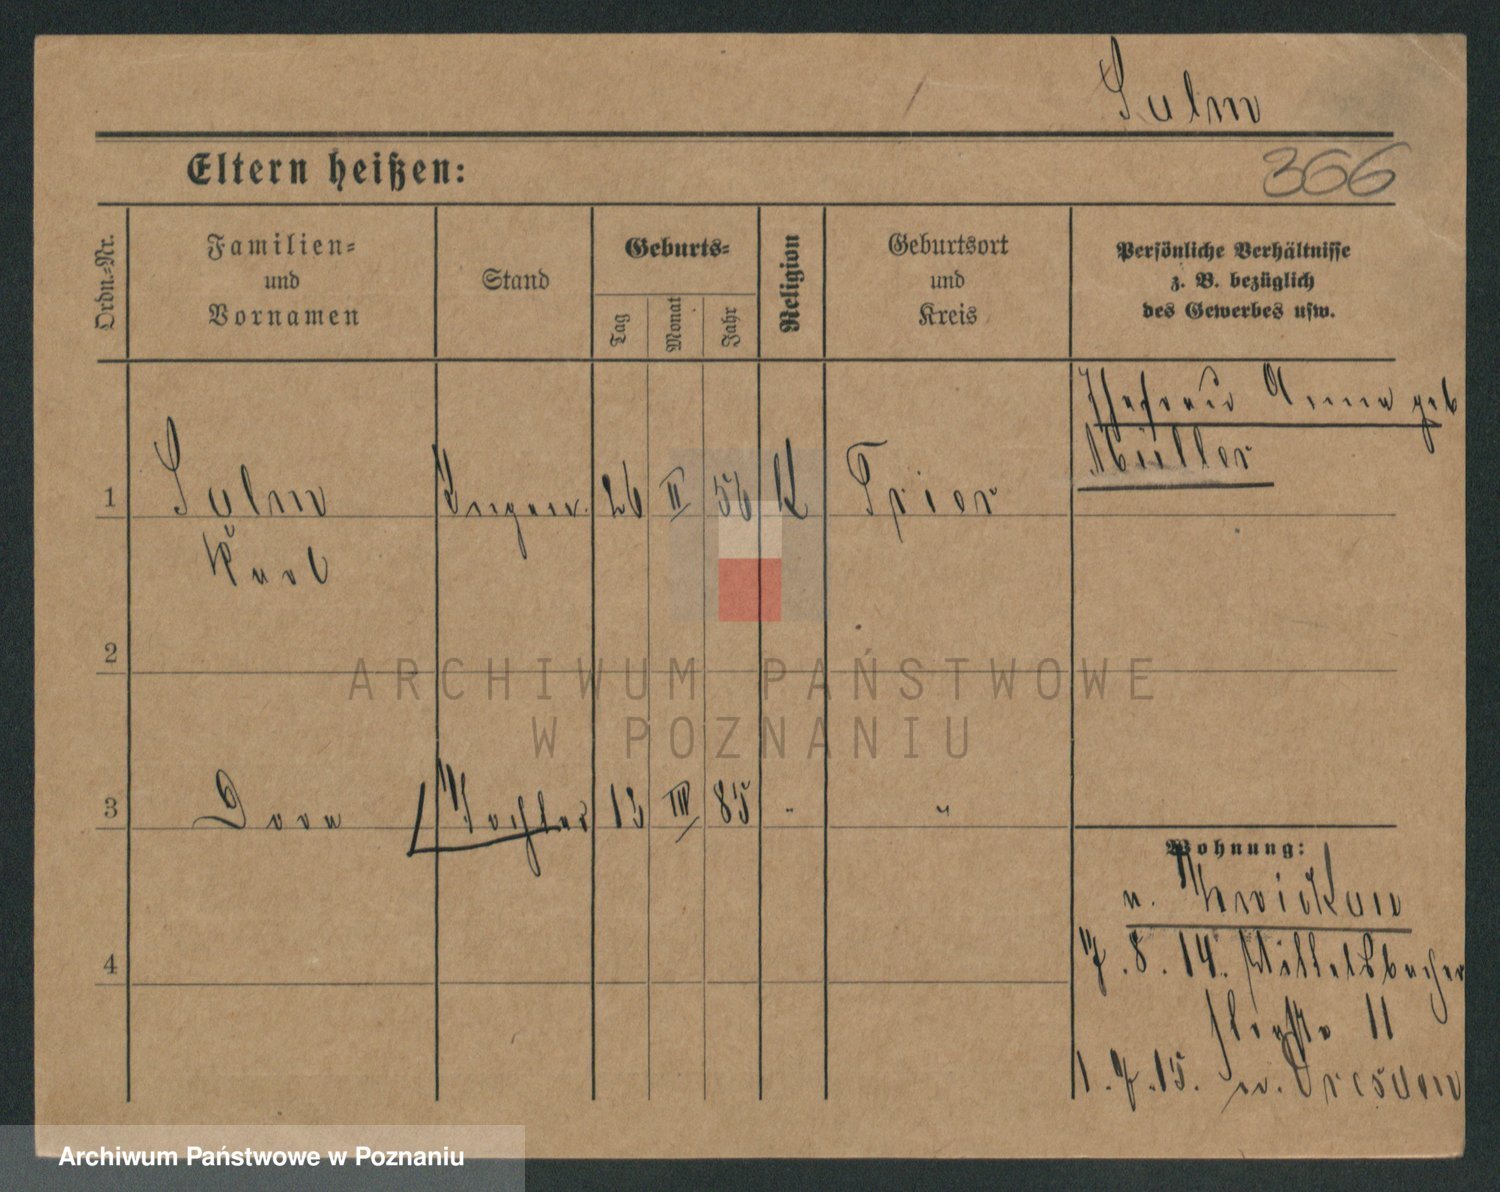 Salm
Eltern heißen:
366
Ordn.-Nr.
Familien-
und
Vornamen
Stand
Geburts-
Tag
Monat
Jahr
Religion
Geburtsort
und
Kreis
Persönliche Verhältnisse
z. B. bezüglich
des Gewerbes usw.
Ehefrau Anna geb
Müller
1 Salm 26 II 56 K Trier
Karl
2
3 Dora Tochter 13 III 85 " "
4
Wohnung:
n. Zwickau
7. 8. 14.
11
1. 7. 15. n. Dresden
ARCHIWUM PAŃSTWOWE
W POZNANIU
Archiwum Państwowe w Poznaniu